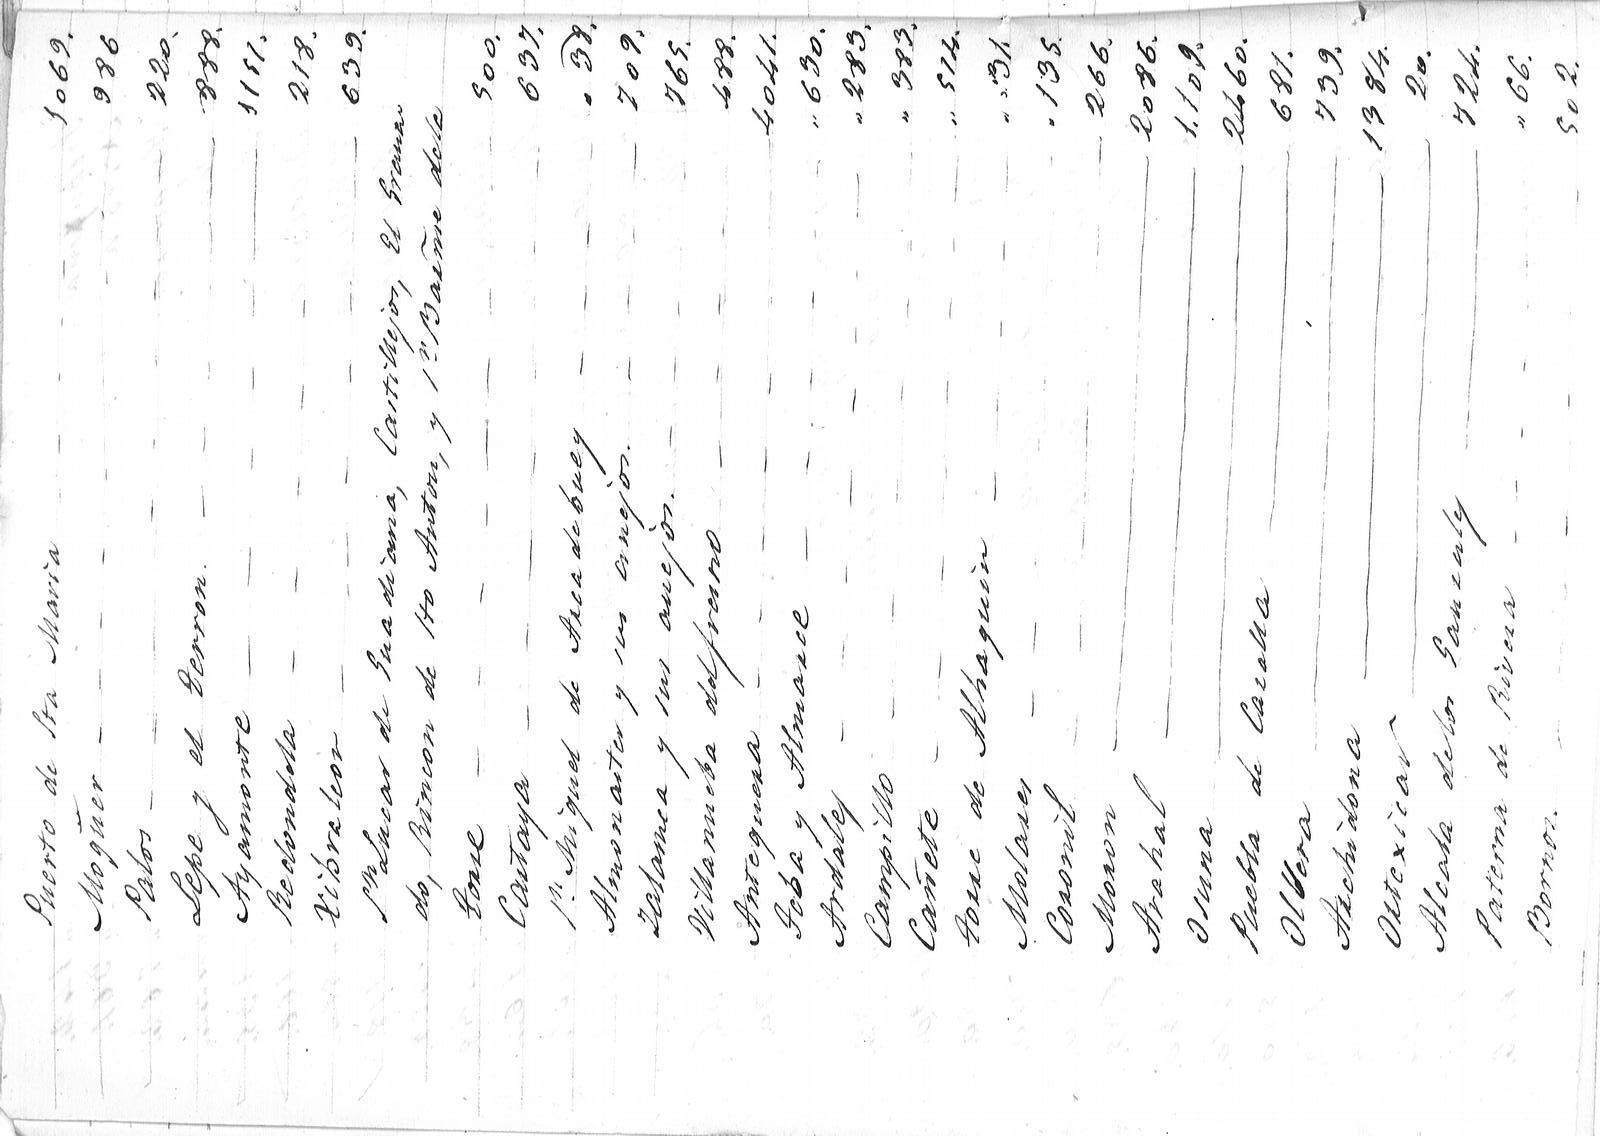 Puerto de Sta Maria 1069.
Moguer 986
Palos 220.
Lepe y el Terron. 888.
Ayamonte 1151.
Redondela 218.
Xibraleon 639.
Sn Lucar de Guadiana, Castillejos, El Grana
do, Rincon de Sto Anton, y Sn Barme dela
Torre 500.
Cartaya 637.
Sn. Miguel de Arcadebuey " 38.
Almonaster y sus anejos. 709.
Zalamea y sus anejos. 765.
Villanueba del fresno 488.
Antequera 4041.
Teba y Almarxe " 630.
Ardales " 283.
Campillo " 383.
Cañete " 514.
Torre de Alhaquin " 31.
Molares " 135.
Coronil 266.
Moron 2086.
Arahal 1.109.
Osuna 2460.
Puebla de Cazalla 681.
Olvera 739.
Archidona 1384.
Ortexicar 20.
Alcala delos Gansules 724.
Paterna de Rivera " 66.
Bornos. 502.